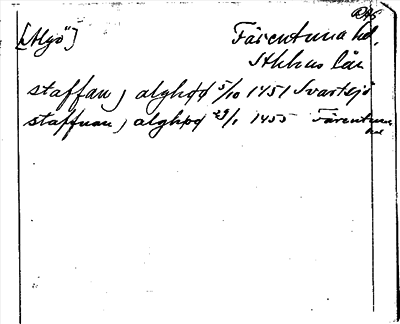 DAS
[Algö"] Färentuna hd.
Sthlms län
staffan, alghöö 5/10 1451 Svartsjö
staffuan, alghöö 29/1 1455 Färentuna
hd